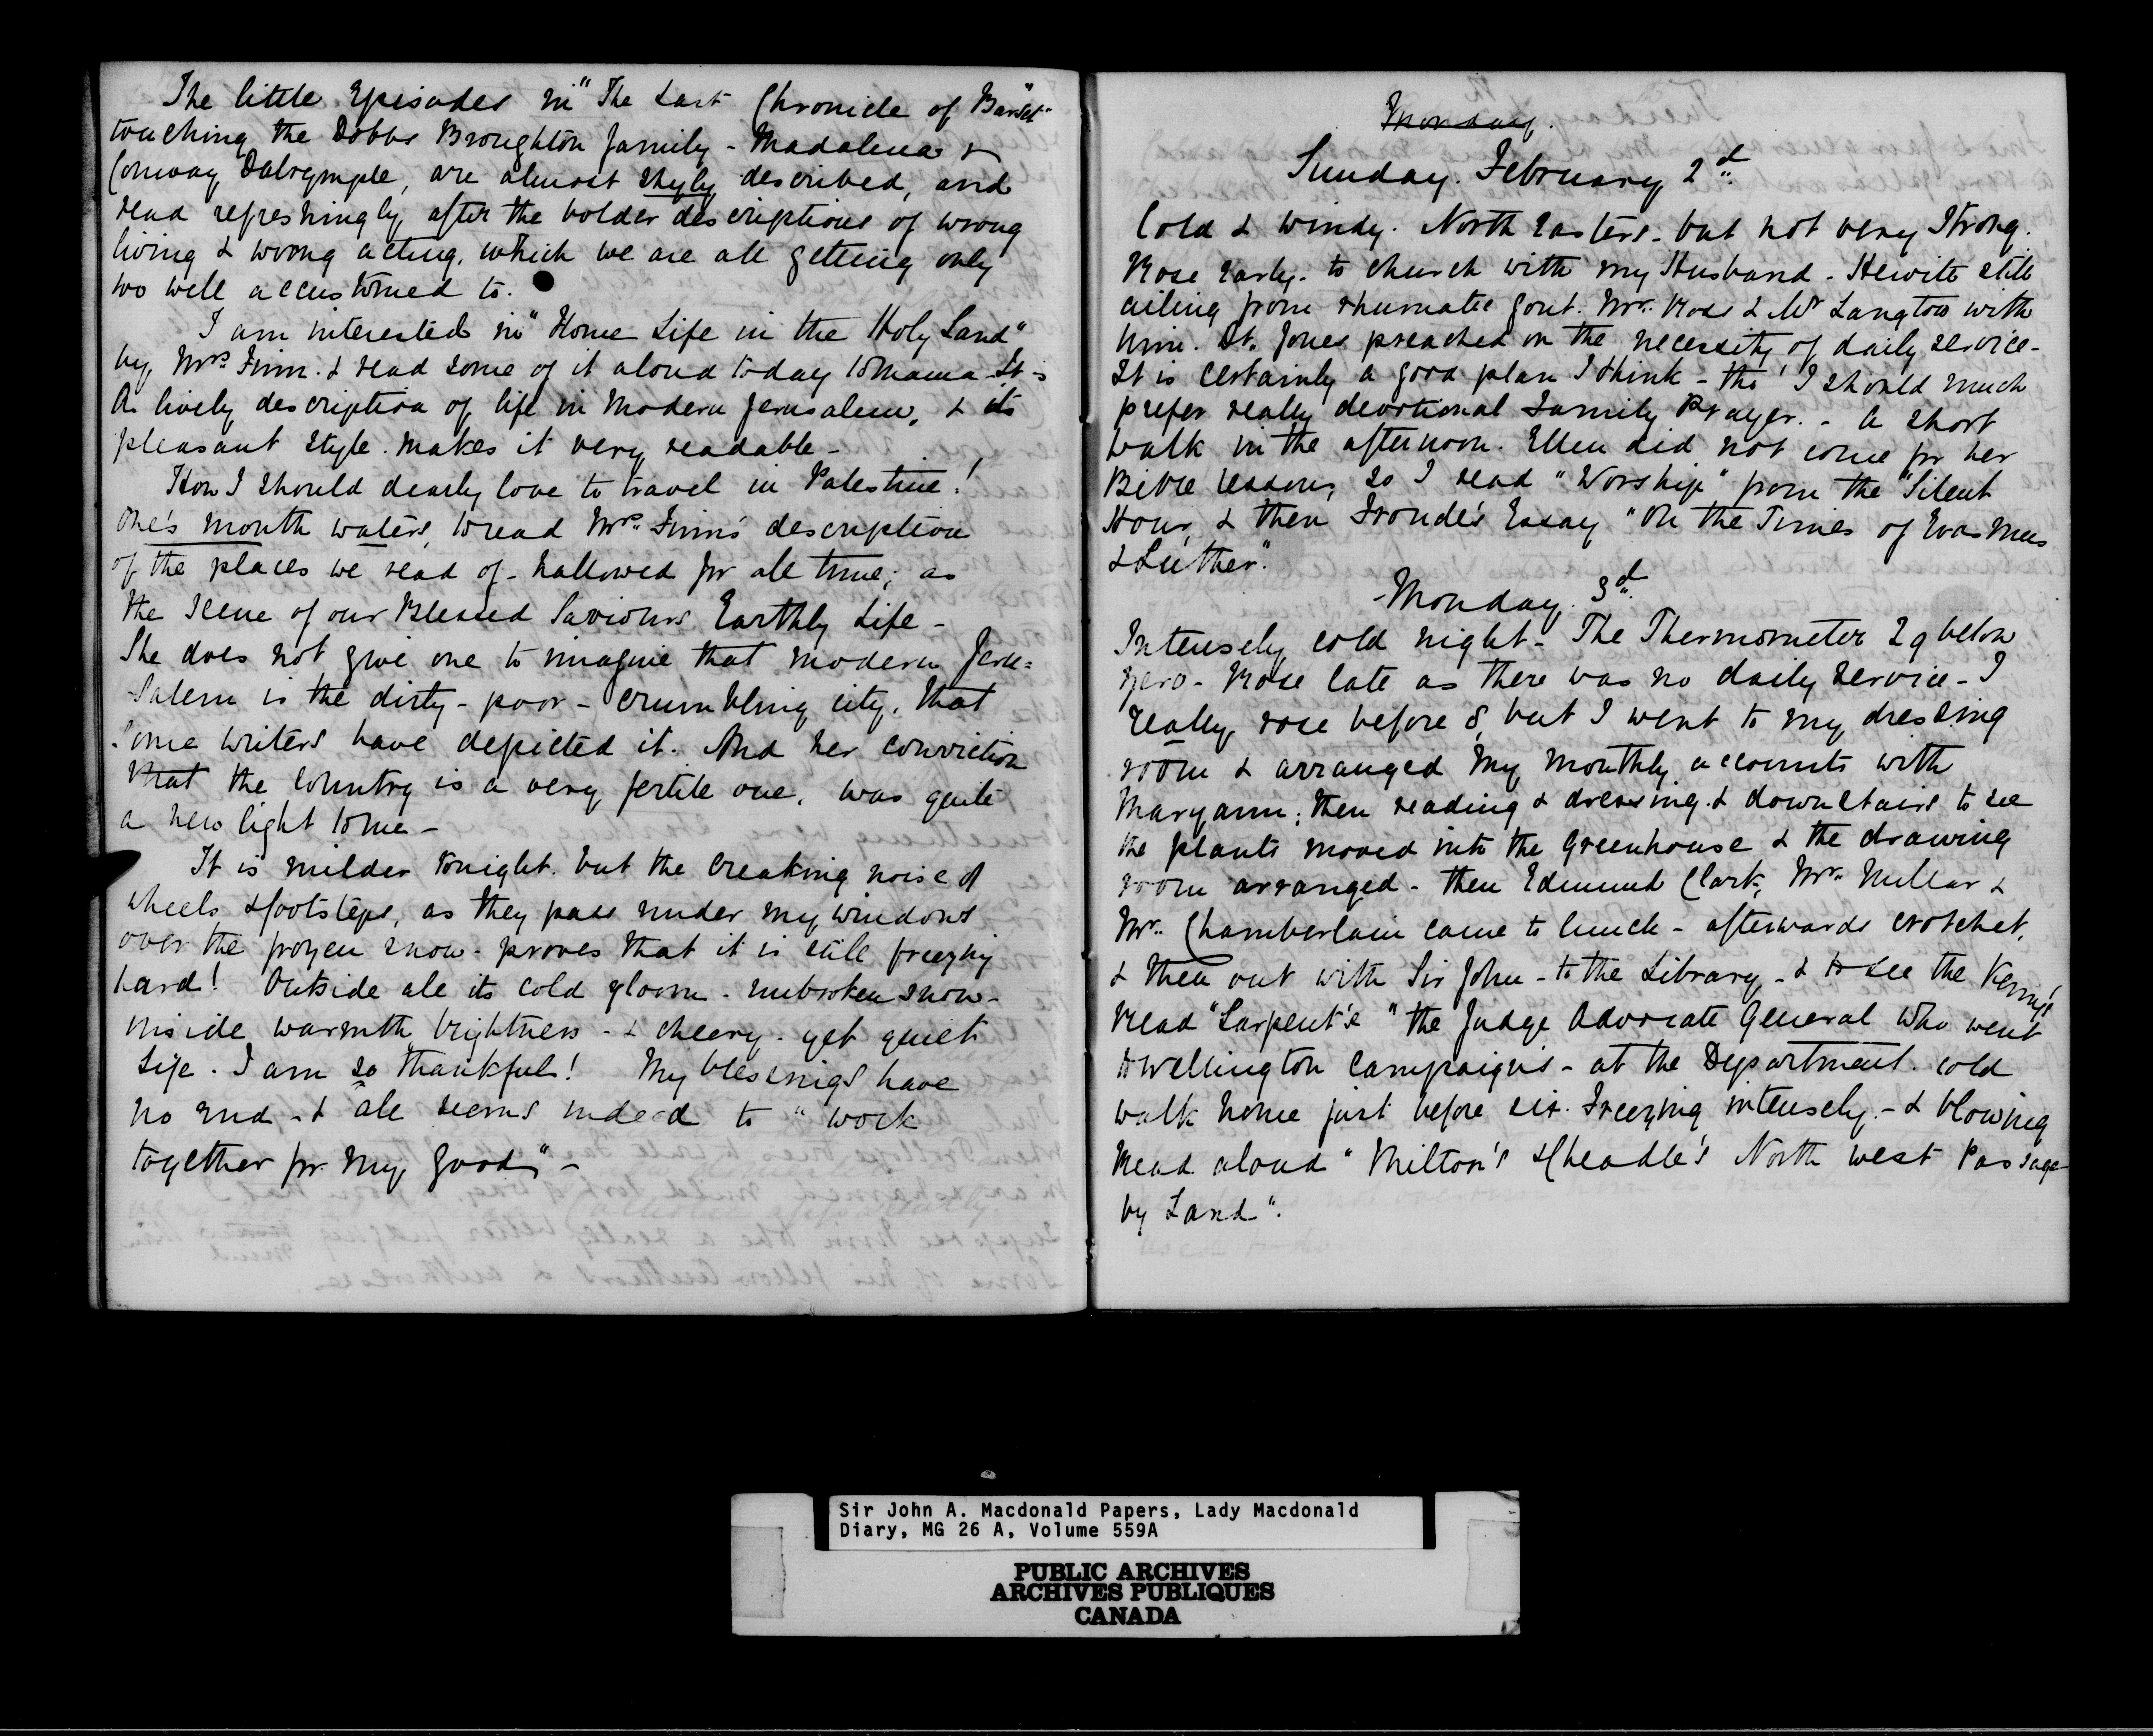 The little Episodes in "The Last Chronicle of Barset"
touching the Dobbs Broughton family - Madalena &
Conway Dalrymple, are almost shyly described, and
read refreshingly after the bolder descriptions of wrong
living & wrong acting, which we are all getting only
too well accustomed to.
I am interested in "Home Life in the Holy Land"
by Mrs. Finn. & read some of it aloud today to Mama - It is
A lively description of life in Modern Jerusalem, & its
pleasant style. makes it very readable -
How I should dearly love to travel in Palestine!
One's mouth waters, to read Mrs. Finn's description
of the places we read of - hallowed for all time; as
the Scene of our Blessed Saviours Earthly Life -
She does not give one to imagine that modern Jeru=
salem is the dirty - poor - crumbling city, that
Some writers have depicted it. And her conviction
that the Country is a very fertile one, was quite
a new light to me -
It is milder tonight. but the creaking noise of
wheels & footsteps, as they pass under my windows
over the frozen snow - proves that it is still freezing
hard! Outside all its cold gloom - unbroken snow -
inside warmth, brightness - & cheery - yet quiet
Life. I am so thankful! My blessings have
no end - & all seems indeed to "work
together for my good" -
Monday.
Sunday. February 2d.
Cold & windy. North Easters - but not very Strong.
Rose early - to church with my Husband - Hewitt still
ailing from rhumatic gout. Mr. Rose & Mr Langton with
him. Dr. Jones preached on the necessity of daily service -
It is certainly a good plan I think - tho' I should much
prefer really devotional Family Prayer. - A short
walk in the afternoon. Ellen did not come for her
Bible lesson, so I read "Worship" from the "Silent
Hour, & then Froude's Essay "On the Times of Erasmus
& Luther".
- Monday. 3d.
Intensely cold night - The Thermometer 29 below
zero - Rose late as there was no daily Service - I
really rose before 8, but I went to my dressing
room & arranged my monthly accounts with
Maryann; then reading & dressing. & downstairs to see
the plants moved into the greenhouse & the drawing
room arranged - then Edmund Clark, Mr. Millar &
Mr. Chamberlain came to lunch - afterwards crotchet,
& then out with Sir John - to the Library - & to see the
Read "Larpent's" the Judge Advocate General who went
to Wellington Campaigns - at the Department. cold
walk home just before six. Freezing intensely. - & blowing
Read aloud "Milton's & Cheadle's North west Passage
by Land".
Sir John A. Macdonald Papers, Lady Macdonald
Diary, MG 26 A, Volume 559A
PUBLIC ARCHIVES
ARCHIVES PUBLIQUES
CANADA